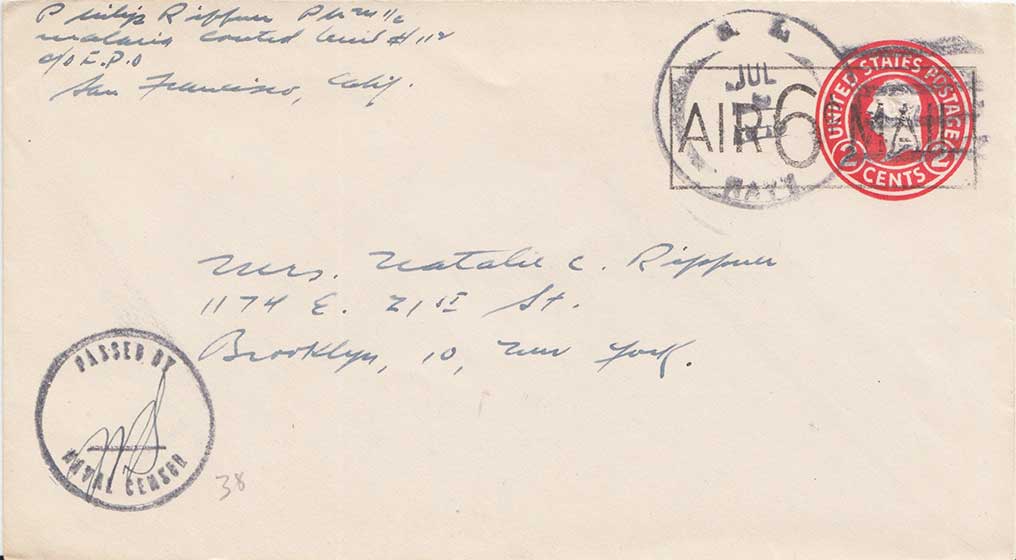 Philip Rippner PhM 1/c
Malaria Control Unit #112
c/o F.P.O
San Francisco, Calif.
JUL
AIR 6¢ MAIL
NAVY
UNITED STATES POSTAGE
2 CENTS 2
Mrs. Natalie C. Rippner
1174 E. 21st St.
Brooklyn, 10, New York.
PASSED BY
NAVAL CENSOR
38